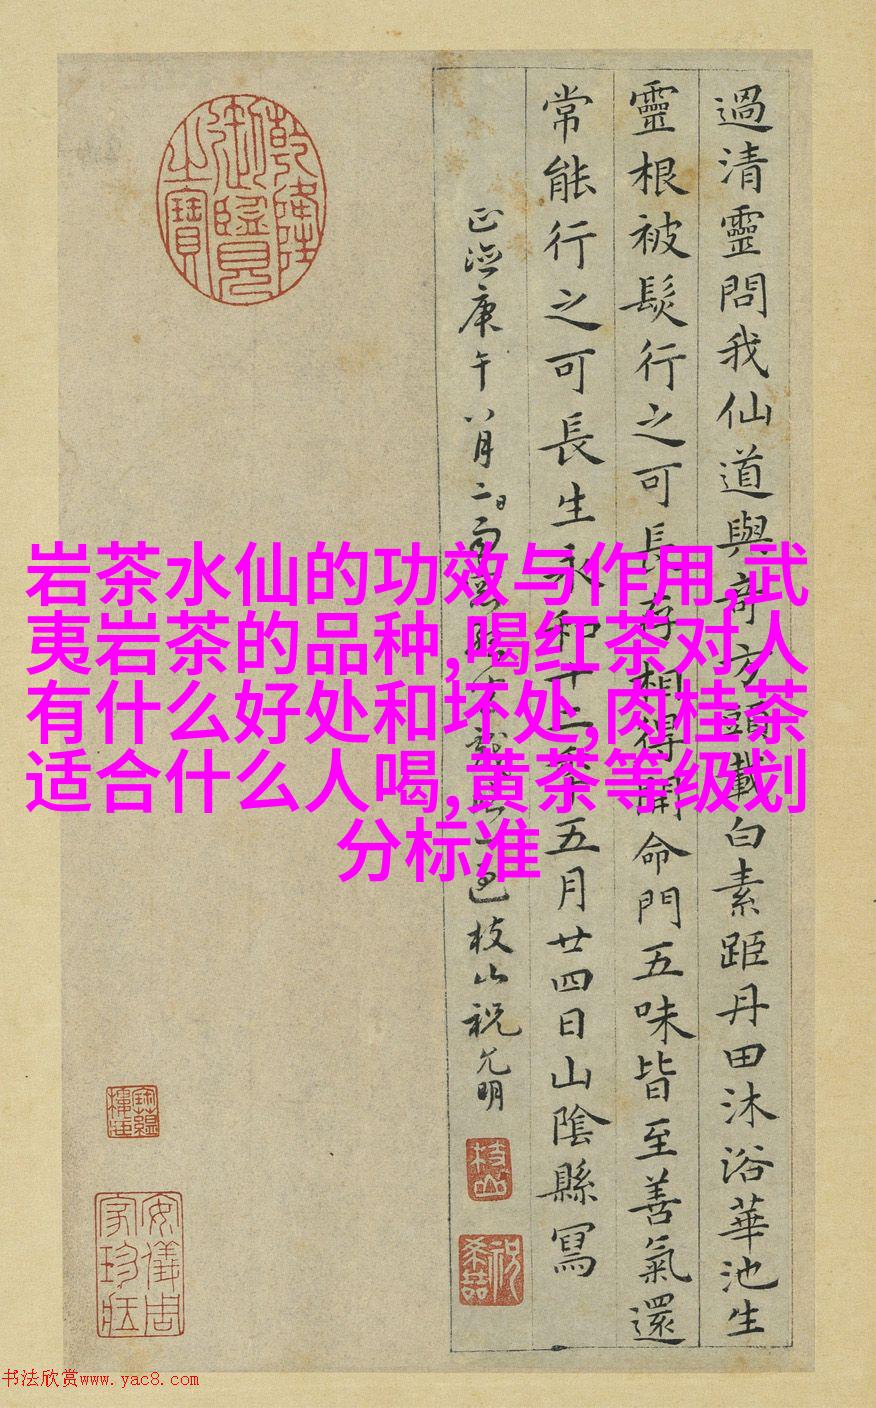 過清靈問我仙道與奇方頭載白素距丹田沐浴華池生
靈根被髮行之可長存相得開命門五味皆至善氣還
常能行之可長生永和十二年五月廿四日山陰縣寫
正德庚午八月二日
枝山祝允明
乾隆御覽之寶
枝山
安儀周家珍藏
岩茶水仙的功效与作用,武
夷岩茶的品种,喝红茶对人
有什么好处和坏处,肉桂茶
适合什么人喝,黄茶等级划
分标准
书法欣赏www.yac8.com